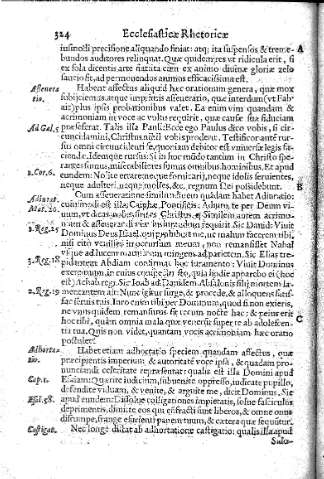 324
Ecclesiasticæ Rhetoricæ
iusmodi precisione aliquando finiat: atq; ita suspensos & treme-
A
bundos auditores relinquat. Quæ quidem res vt ridicula erit, si
ex sola dicentis arte
sit, ad permouendos animos efficacissima est.
Assevera
tio.
Habent affectus aliquid hæc orationum genera, quæ mox
subijciemus. atque imprimis asseueratio, quæ interdum (vt Fab.
ait) plus ipsis probationibus valet. Ea enim vim quandam &
acrimoniam in voce ac vultu requirit, quæ causæ suæ fiduciam
Ad Gal. 5
præ se ferat. Talis illa Pauli: Ecce ego Paulus dico vobis, si cir-
cuncidamini, Christus nihil vobis proderit. Testificor ante rur-
sus omni circuncidenti se, quoniam debitor est vniuersæ legis fa-
ciendæ. Idemque rursus: Si in hac vita tantum in Christo spe-
rantes sumus, miserabiliores sumus omnibus hominibus. Et apud
1. Cor. 6.
eundem: Nolite errare: neque fornicarij, neque idolis seruientes,
neque adulteri, neque molles, &c. regnum Dei possidebunt.
B
Cum asseueratione similitudinem quandam habet Adiuratio:
Mat. 26.
cuiusmodi est illa Caiphæ Pontificis: Adiuro te per Deum vi-
uum, vt dicas nobis si tu es Christus. Similem autem acrimo-
niam & asseuerandi vim
1. Reg. 25
Dominus Deus Israel, qui prohibuit me, ne malum facerem tibi,
nisi cito venisses in occursum meum, non remansisset Nabal
vsque ad lucem matutinam mingens ad parietem. Sic Elias tre-
3. Reg. 18
pidantem Abdiam confirmat hoc iuramento: Viuit Dominus
exercituum, in cuius conspectu sto, quia hodie apparebo ei (hoc
2. Reg. 19
est) Achab regi. Sic Ioab ad Dauidem Absalonis filij mortem la-
mentantem ait: Nunc igitur surge, & procede, & alloquens satisf-
fac seruis tuis. Iuro enim tibi per Dominum, quod si non exieris,
ne vnus quidem remansurus sit tecum nocte hac: & peius erit
hoc tibi, quàm omnia mala quæ venerunt super te ab adolescen-
C
tia tua. Quis non videt, quantam vocis acrimoniam hæc oratio
postulet?
Adhorta-
tio.
Habet etiam adhortatio speciem quandam affectus, quæ
præcipientis imperium & autoritate voce ipsa, & quadam pro-
nunciandi celeritate repræsentat: qualis est illa Domini apud
Cap. 1.
Esaiam: Quærite iudicium, subuenite oppresso, iudicate pupillo,
defendite viduam, & venite, & arguite me, dicit Dominus. Sic
Esa. 58.
apud eundem: Dissolue colligationes impietatis, solue fasciculos
deprimentes, dimitte eos qui confracti sunt liberos, & omne onus
disrumpe, frange esurienti panem tuum, & cætera quæ sequuntur.
Castigat.
Nec longè distat ab adhortatione castigatio: qualis illa apud
Salo-